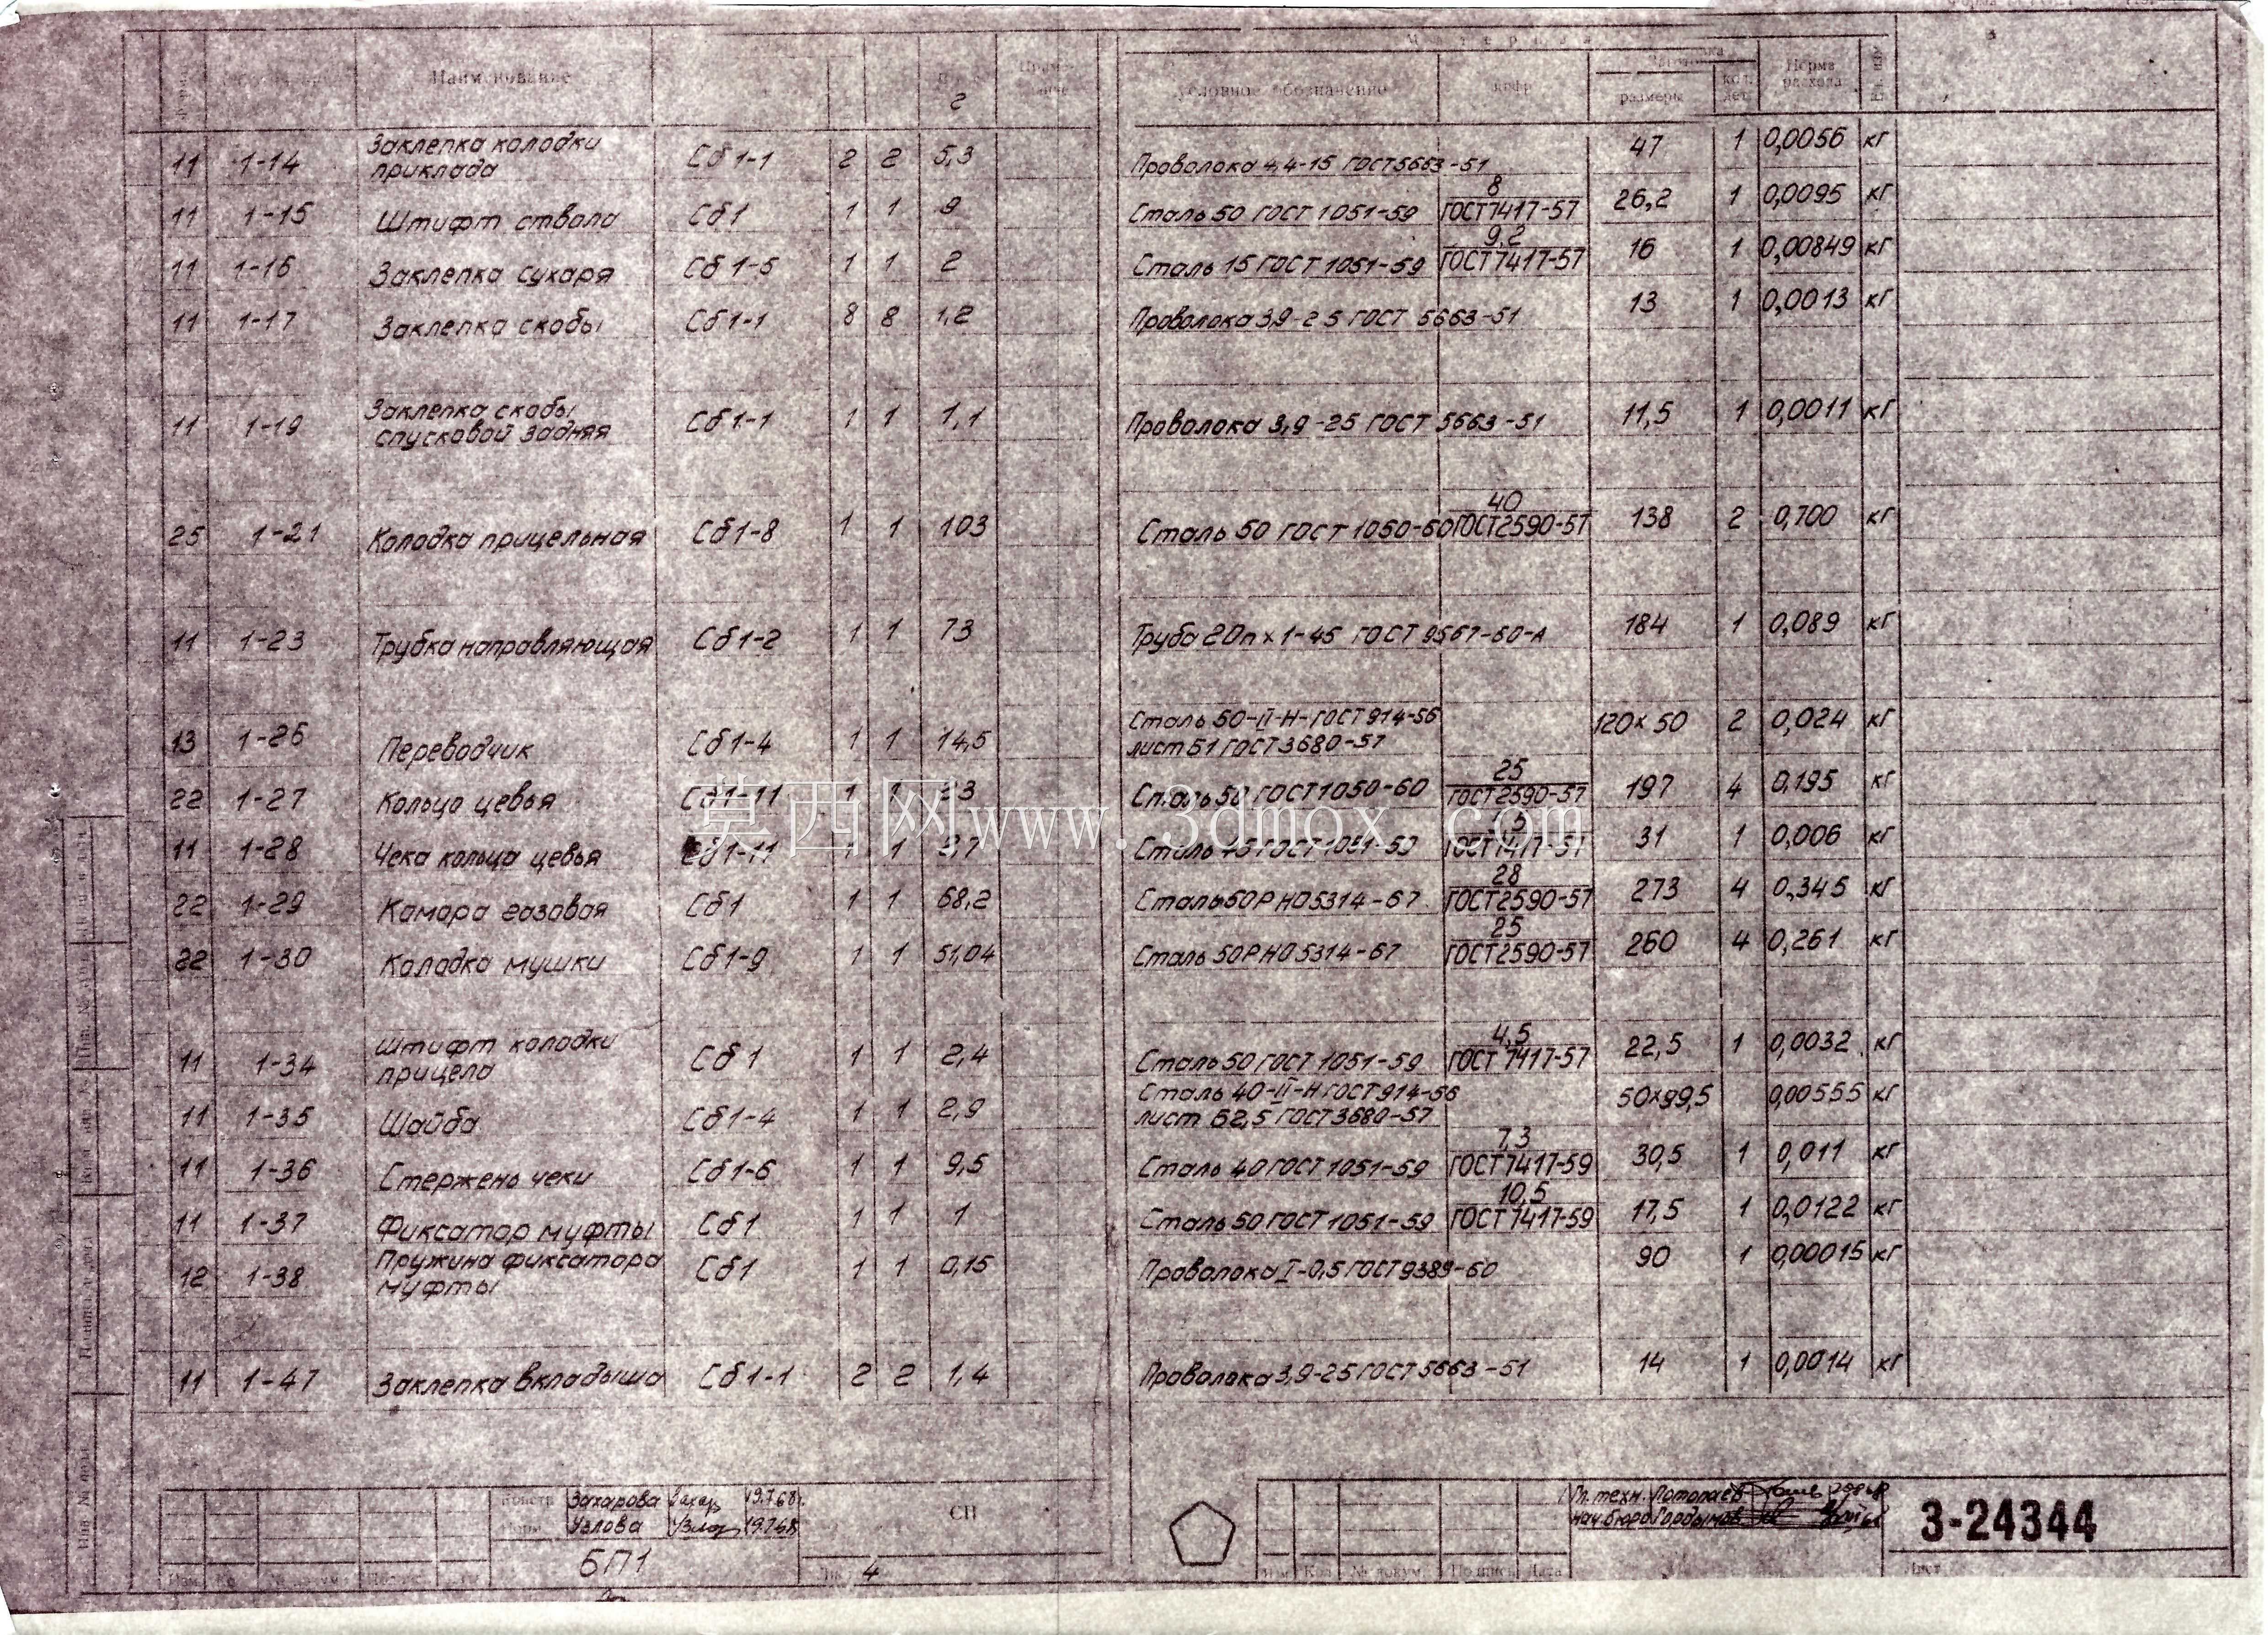 Наименование
г
условное обозначение
шифр
размеры
кол. дет.
Норма расхода
11 1-14 Заклепка колодки приклада Сб 1-1 2 2 5,3 Проволока 4,4-15 ГОСТ 5663-51 47 1 0,0056 кг
11 1-15 Штифт ствола Сб 1 1 1 9 Сталь 50 ГОСТ 1051-59 8 ГОСТ 7417-57 26,2 1 0,0095 кг
11 1-16 Заклепка сухаря Сб 1-5 1 1 2 Сталь 15 ГОСТ 1051-59 9,2 ГОСТ 7417-57 16 1 0,00849 кг
11 1-17 Заклепка скобы Сб 1-1 8 8 1,2 Проволока 3,9-25 ГОСТ 5663-51 13 1 0,0013 кг
11 1-19 Заклепка скобы спусковой задняя Сб 1-1 1 1 1,1 Проволока 3,9-25 ГОСТ 5663-51 11,5 1 0,0011 кг
25 1-21 Колодка прицельная Сб 1-8 1 1 103 Сталь 50 ГОСТ 1050-60 40 ГОСТ 2590-57 138 2 0,700 кг
11 1-23 Трубка направляющая Сб 1-2 1 1 73 Труба 20п×1-45 ГОСТ 9567-60-А 184 1 0,089 кг
13 1-26 Переводчик Сб 1-4 1 1 14,5 Сталь 50-II-Н-ГОСТ 914-56 лист Б1 ГОСТ 3680-57 120×50 2 0,024 кг
22 1-27 Кольцо цевья Сб 1-11 1 1 23 Сталь 50 ГОСТ 1050-60 25 ГОСТ 2590-57 197 4 0,195 кг
11 1-28 Чека кольца цевья Сб 1-11 1 1 ГОСТ 1051-59 ГОСТ 7417-57 31 1 0,006 кг
22 1-29 Камора газовая Сб 1 1 1 68,2 Сталь 50РНО5314-67 28 ГОСТ 2590-57 273 4 0,345 кг
22 1-30 Колодка мушки Сб 1-9 1 1 51,04 Сталь 50РНО5314-67 25 ГОСТ 2590-57 260 4 0,261 кг
11 1-34 Штифт колодки прицела Сб 1 1 1 2,4 Сталь 50 ГОСТ 1051-59 4,5 ГОСТ 7417-57 22,5 1 0,0032 кг
11 1-35 Шайба Сб 1-4 1 1 2,9 Сталь 40-II-Н ГОСТ 914-56 лист Б2,5 ГОСТ 3680-57 50×99,5 0,00555 кг
11 1-36 Стержень чеки Сб 1-6 1 1 9,5 Сталь 40 ГОСТ 1051-59 7,3 ГОСТ 7417-59 30,5 1 0,011 кг
11 1-37 Фиксатор муфты Сб 1 1 1 1 Сталь 50 ГОСТ 1051-59 10,5 ГОСТ 7417-59 17,5 1 0,0122 кг
12 1-38 Пружина фиксатора муфты Сб 1 1 1 0,15 Проволока I-0,5 ГОСТ 9389-60 90 1 0,00015 кг
11 1-47 Заклепка вкладыша Сб 1-1 2 2 1,4 Проволока 3,9-25 ГОСТ 5663-51 14 1 0,0014 кг
莫西网www.3dmox.com
Захарова 19.7.68г.
Узлова 19.7.68
БП1
СП
4
Гл. техн. Потапаев
нач. бюро Гордымов
3-24344
№ докум. Подпись Дата
Лист